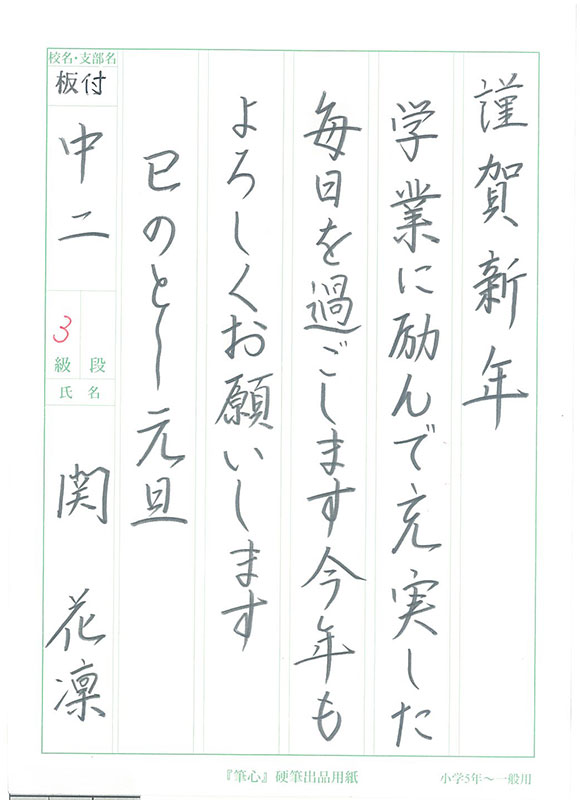 謹賀新年
学業に励んで充実した
毎日を過ごします今年も
よろしくお願いします
巳のとし元旦
校名・支部名
板付
中二
3
級 段
氏 名
関 花凜
『筆心』硬筆出品用紙
小学5年〜一般用